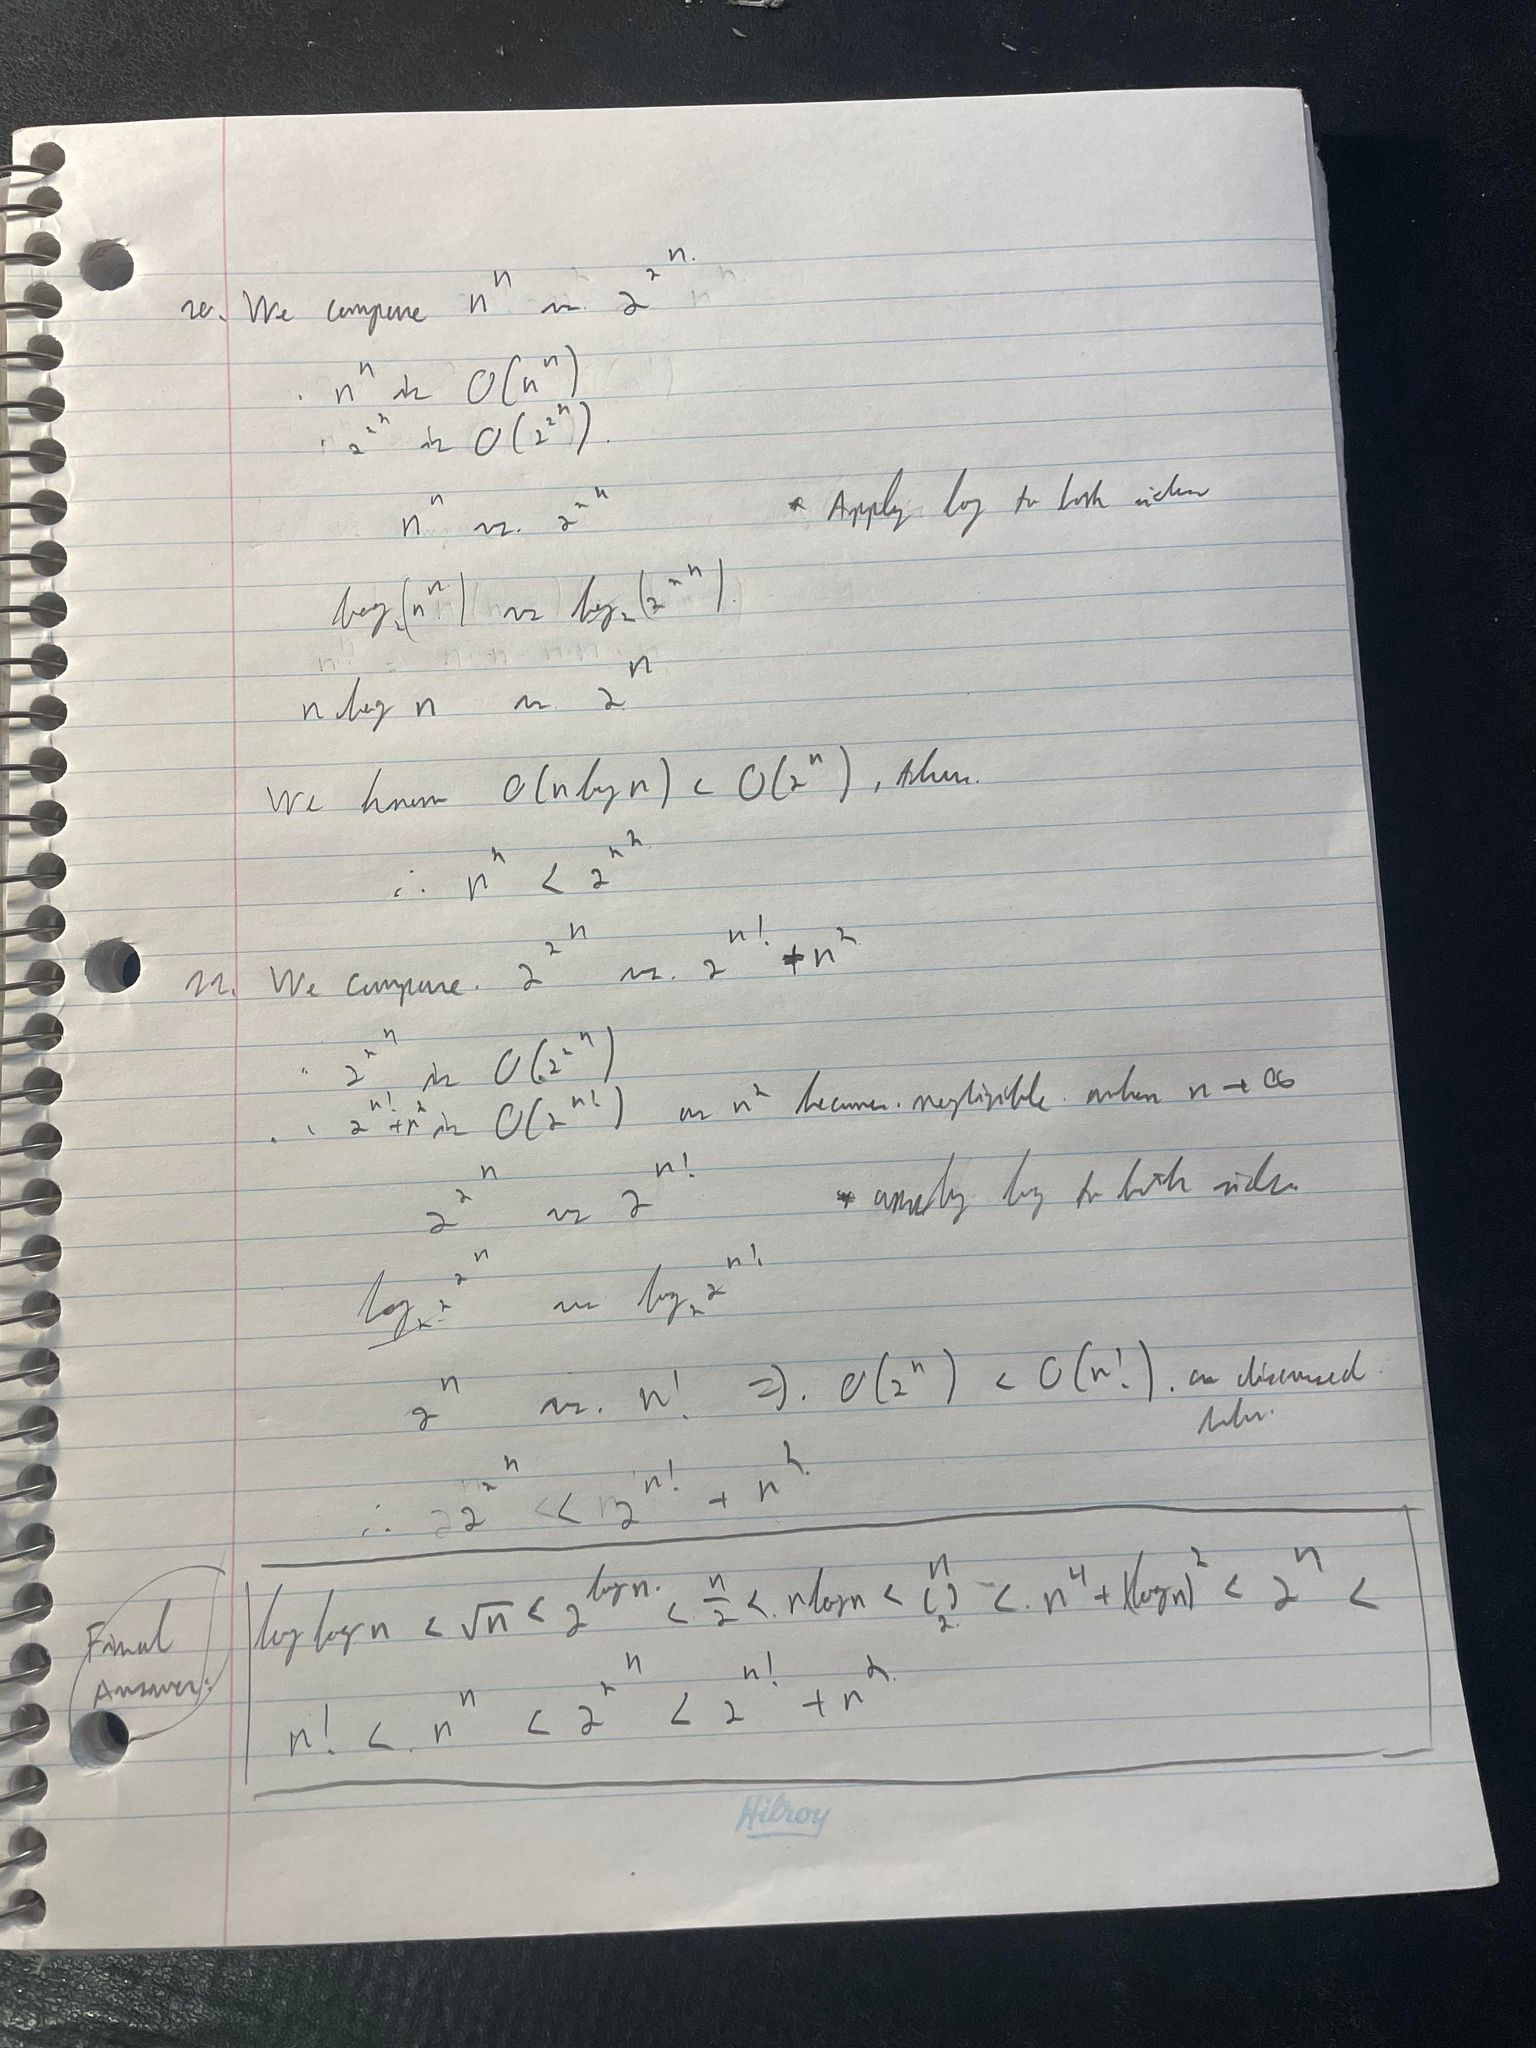 20. We compare n^n vs. 2^2^n.
· n^n is O(n^n)
· 2^2^n is O(2^2^n).
n^n vs. 2^2^n * Apply log to both sides
log₂(n^n) vs log₂(2^2^n).
n log n vs 2^n
We know O(n log n) < O(2^n), then.
∴ n^n < 2^2^n
We compare. 2^2^n vs. 2^n! + n^2
· 2^2^n is O(2^2^n)
· 2^n! + n^2 is O(2^n!) as n^2 becomes negligible when n → ∞
2^2^n vs 2^n! * apply log to both sides.
log₂ 2^2^n vs log₂ 2^n!
2^n vs. n! ⇒. O(2^n) < O(n!). as discussed
∴ 2^2^n < 2^n! + n^2
Final Answer:
log log n < √n < 2^log n. < n/2 <. n log n < (n 2) <. n^4 + (log n)^2 < 2^n <
n! <. n^n < 2^2^n < 2^n! + n^2.
Hilroy